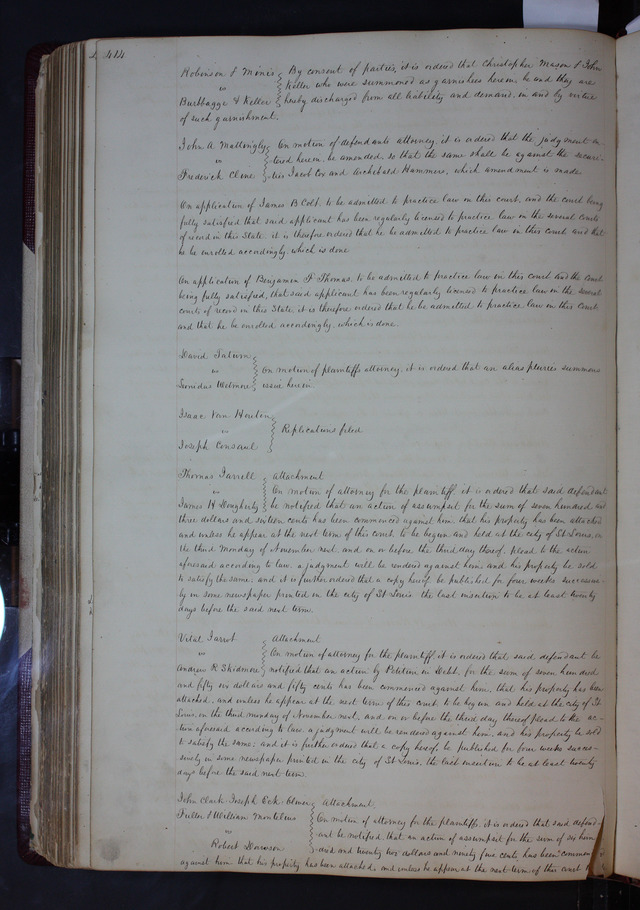 414
Robinson & Monis } By consent of parties, it is ordered that Christopher Mason & John
vs Keller who were summoned as garnishees herein be and they are
Burbagge & Keller hereby discharged from all liability and demand, in and by virtue
of such garnishment.
John A Mattingly } On motion of defendants attorney, it is ordered that the judgment en-
vs tered herein, be amended, so that the same shall be against the securi-
Frederick Cline ties Jacob Cox and Archibald Hammers, which amendment is made.
On application of James B Colt, to be admitted to practice law in this court, and the court being
fully satisfied that said applicant has been regularly licensed to practice law in the several courts
of record in this State it is therefore ordered that he be admitted to practice law in this court and that
he be enrolled accordingly. which is done
On application of Benjamin F Thomas, to be admitted to practice law in this court and the court
being fully satisfied, that said applicant has been regularly licensed to practice law in the several
courts of record in this State it is therefore ordered that he be admitted to practice law in this court
and that he be enrolled accordingly. which is done.
David Tatum
vs } On motion of plaintiffs attorney, it is ordered that an alias pluries summons
Leonidas Wetmore issue herein
Isaac Van Houten
vs } Replications filed
Joseph Consaul
Thomas Farrell } Attachment
vs On motion of attorney for the plaintiff it is ordered that said defendant
James H Dougherty be notified that an action of assumpsit for the sum of seven hundred and
three dollars and sixteen cents has been commenced against him, that his property has been attached
and unless he appear at the next term of this court to be begun and held at the city of St Louis, on
the third Monday of November next, and on or before the third day thereof, plead to the action
aforesaid according to law, a judgment will be rendered against him, and his property be sold
to satisfy the same, and it is further ordered that a copy hereof be published for four weeks successive-
ly in some newspaper printed in the city of St Louis the last insertion to be at least twenty
days before the said next term.
Vital Jarrot } Attachment
vs On motion of attorney for the plaintiff it is ordered that said defendant be
Andrew R Skidmore notified that an action by Petition in Debt, for the sum of seven hundred
and fifty six dollars and fifty cents has been commenced against him, that his property has been
attached, and unless he appear at the next term of this court to be begun and held at the city of St
Louis, on the third monday of November next, and on or before the third day thereof plead to the ac-
tion aforesaid according to law, a judgment will be rendered against him, and his property be sold
to satisfy the same; and it is further ordered that a copy hereof be published for four weeks succes-
sively in some newspaper printed in the city of St Louis, the last insertion to be at least twenty
days before the said next term.
John Clark Joseph Eck Elmer } Attachment
Fuller & William Montelius On motion of attorney for the plaintiffs, it is ordered that said defend-
vs ant be notified, that an action of assumpsit for the sum of six hun-
Robert Dawson dred and twenty two dollars and ninety five cents, has been commenced
against him that his property has been attached, and unless he appear at the next term of this court